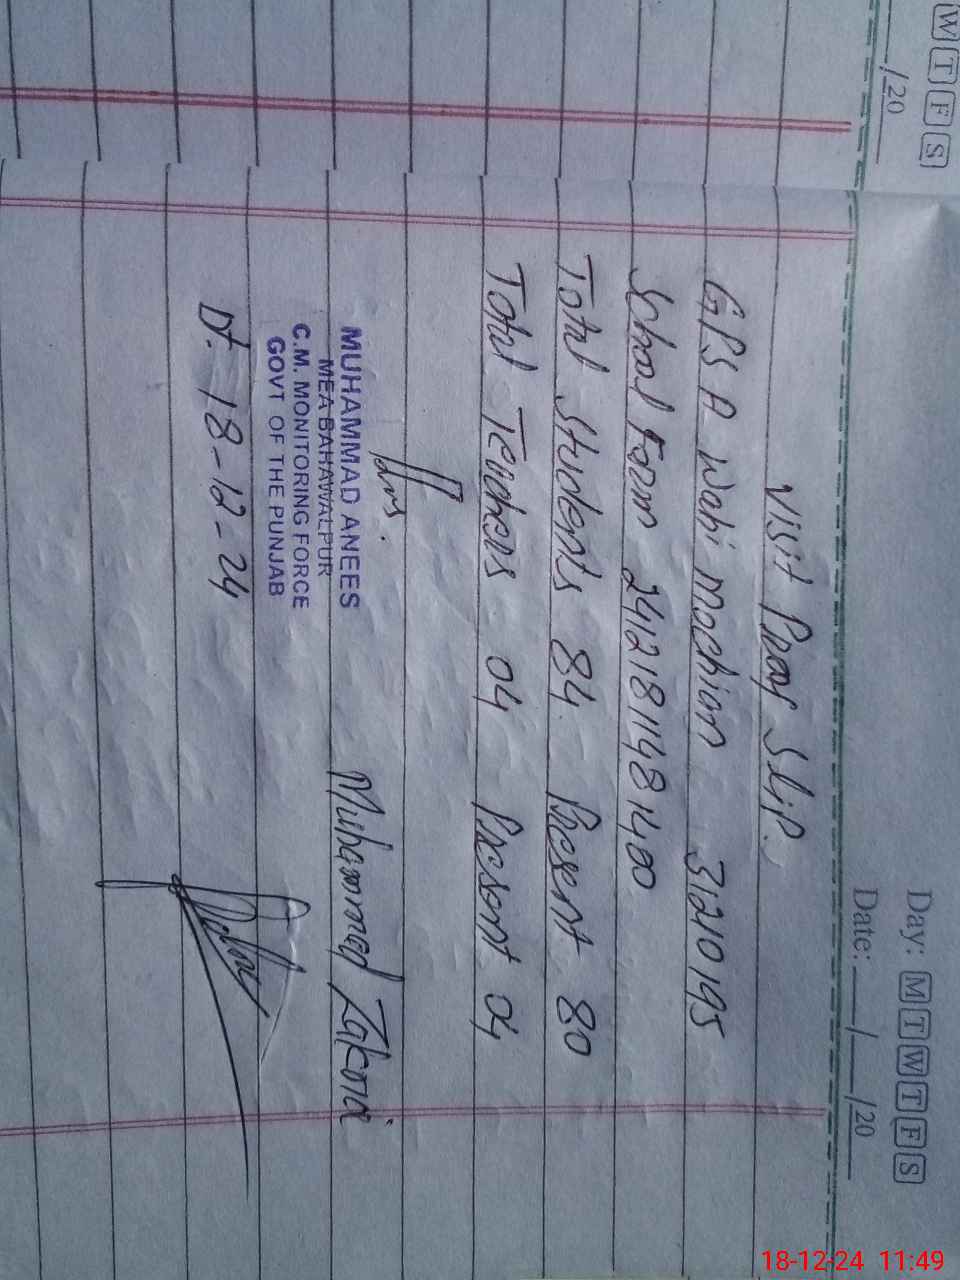 W T F S
/20
Day: M T W T F S
Date: ___/___/20___
Visit Proof Slip.
GPS A Wahi Mochian 31210195
School Form 2412181148 1400
Total Students 84 Present 80
Total Teachers 04 Present 04
MUHAMMAD ANEES
MEA BAHAWALPUR
C.M. MONITORING FORCE
GOVT OF THE PUNJAB
Muhammad Zakria
Dt. 18-12-24
18-12-24 11:49